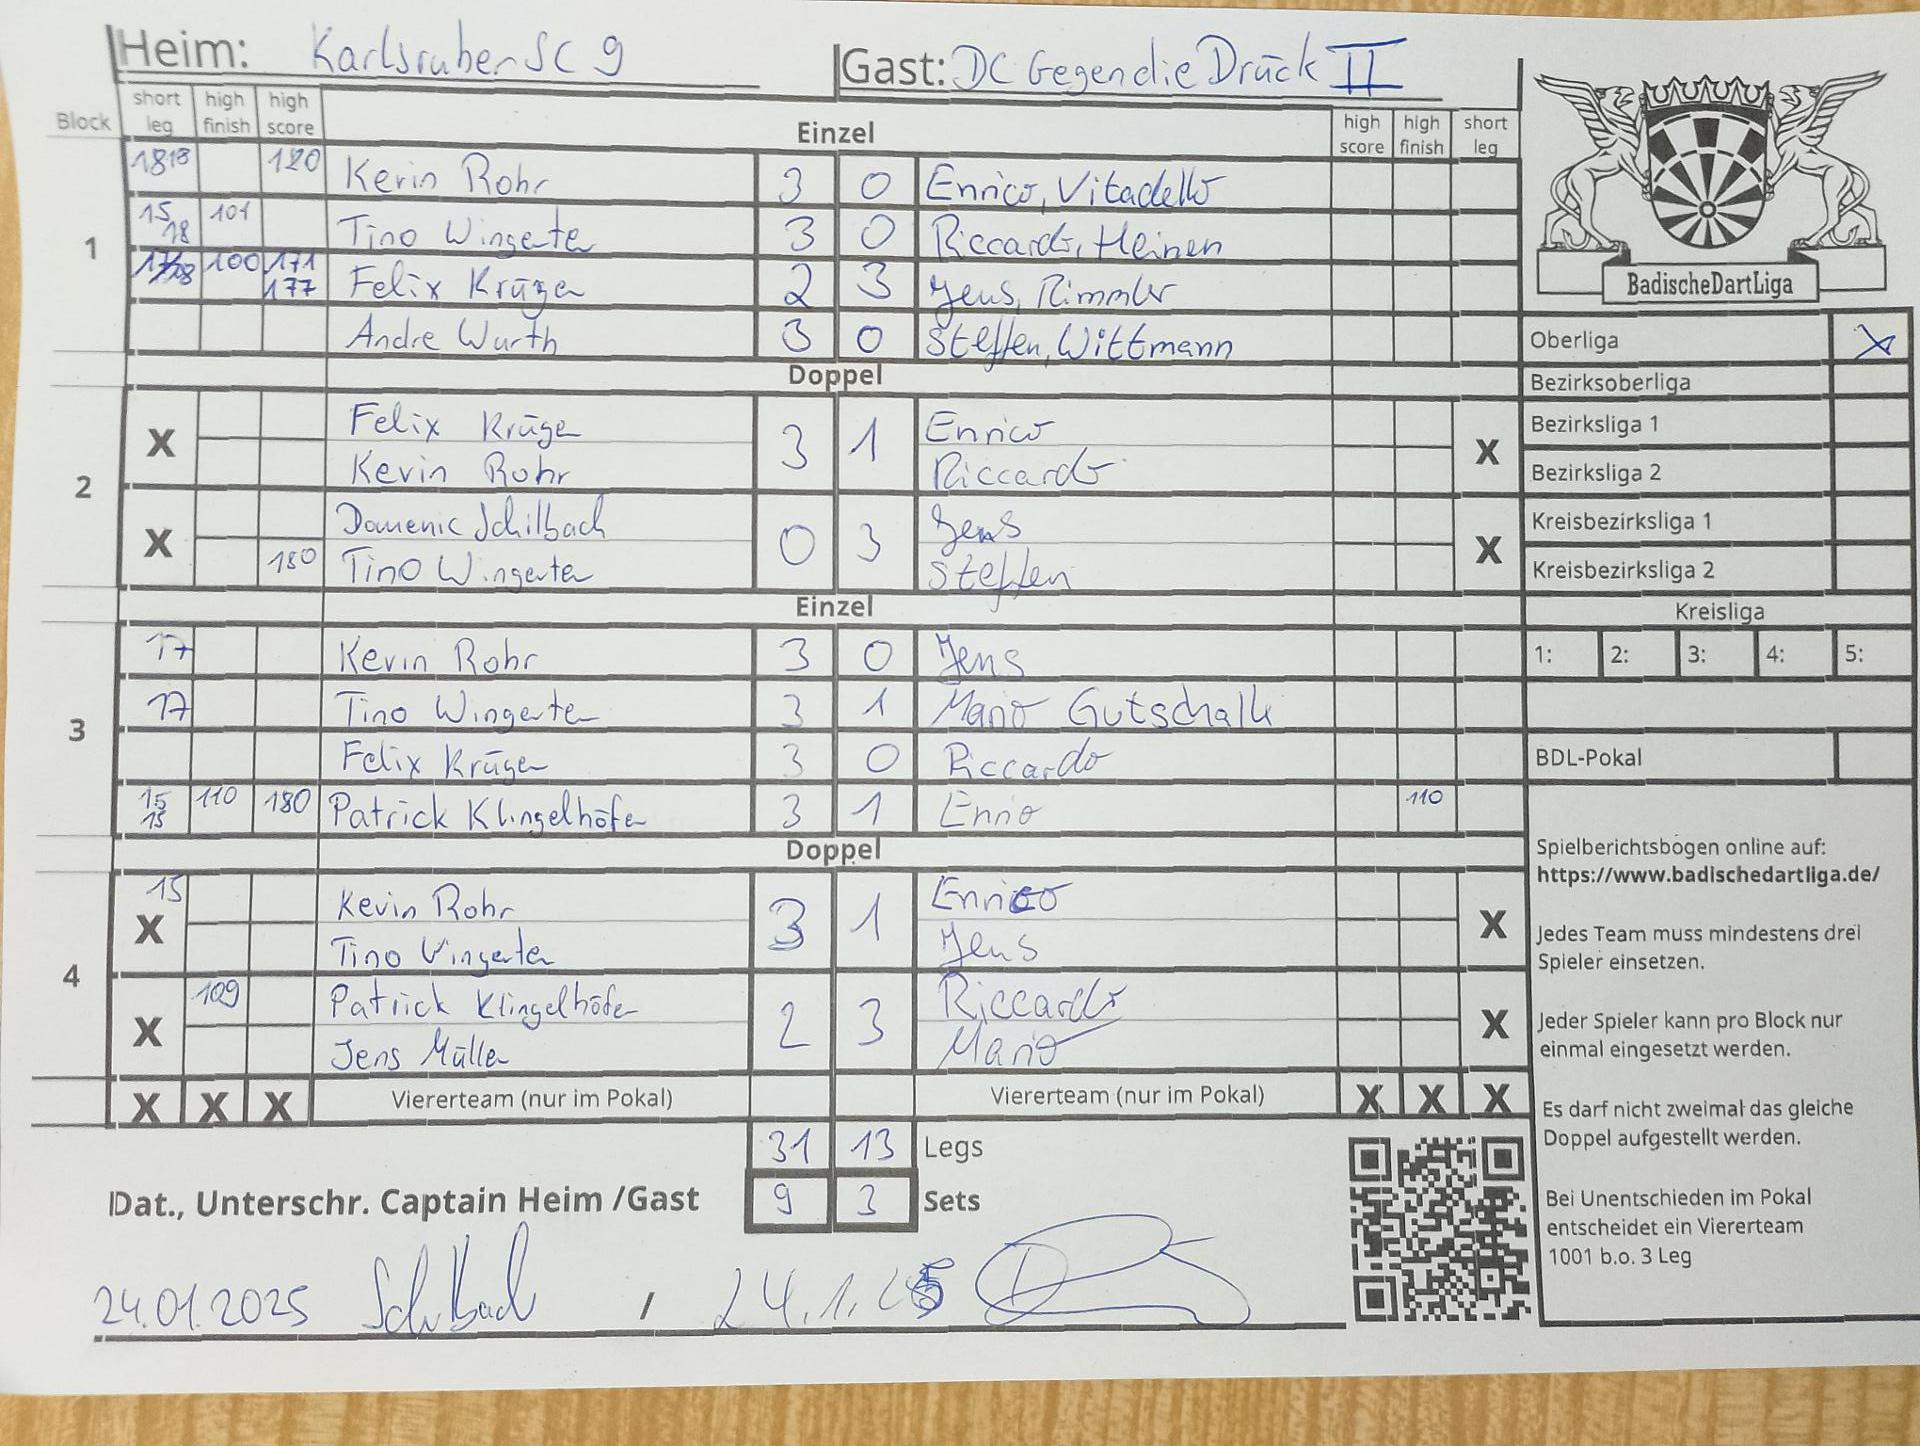 Heim: Karlsruher SC 9 Gast: DC Gegen die Drück II
Block short leg high finish high score Einzel high score high finish short leg
1
18 18 180 Kevin Rohr 3 0 Enrico, Vitadello
15 18 101 Tino Wingerter 3 0 Riccardo, Heinen
100 171 177 Felix Krüger 2 3 Jens, Rimmler
Andre Wurth 3 0 Steffen, Wittmann
Doppel
2
X Felix Krüger 3 1 Enrico X
Kevin Rohr Riccardo
X Domenic Schilbach 0 3 Jens X
180 Tino Wingerter Steffen
Einzel
3
17 Kevin Rohr 3 0 Jens
17 Tino Wingerter 3 1 Mario Gutschalk
Felix Krüger 3 0 Riccardo
15 15 110 180 Patrick Klingelhöfer 3 1 Enrio 110
Doppel
4
15 X Kevin Rohr 3 1 Enrico X
Tino Wingerter Jens
X 109 Patrick Klingelhöfer 2 3 Riccardo X
Jens Müller Mario
X X X Viererteam (nur im Pokal) Viererteam (nur im Pokal) X X X
31 13 Legs
Dat., Unterschr. Captain Heim /Gast 9 3 Sets
24.01.2025 Schilbach / 24.1.25
BadischeDartLiga
Oberliga X
Bezirksoberliga
Bezirksliga 1
Bezirksliga 2
Kreisbezirksliga 1
Kreisbezirksliga 2
Kreisliga
1: 2: 3: 4: 5:
BDL-Pokal
Spielberichtsbögen online auf:
https://www.badischedartliga.de/
Jedes Team muss mindestens drei
Spieler einsetzen.
Jeder Spieler kann pro Block nur
einmal eingesetzt werden.
Es darf nicht zweimal das gleiche
Doppel aufgestellt werden.
Bei Unentschieden im Pokal
entscheidet ein Viererteam
1001 b.o. 3 Leg